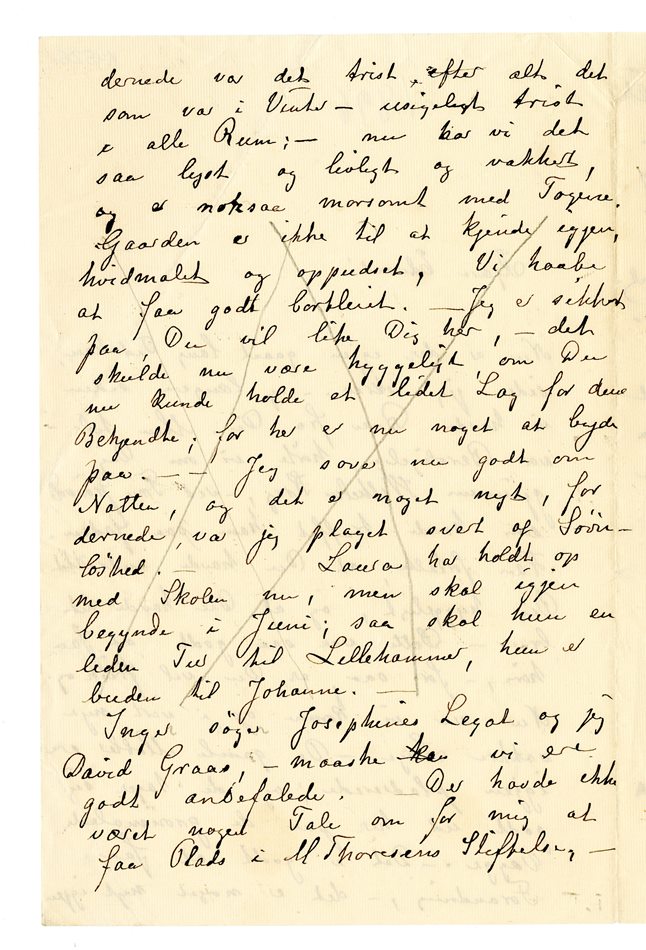 dernede var det trist, efter alt det
som var i Vinter – usigeligt trist
i alle Rum; – nu har vi det
saa lyst og livligt og vakkert,
og er noksaa morsomt med Togene.
Gaarden er ikke til at kjende igjen,
hvidmalet og oppudset, Vi haabe
at faa godt bortleiet. – Jeg er sikker
paa, Du vil like Dig her, – det
skulde nu være hyggeligt, om Du
nu kunde holde et lidet Lag for dine
Bekjendte; for her er nu noget at byde
paa. – – Jeg sover nu godt om
Natten, og det er noget nyt, for
dernede, var jeg plaget svært af Søvn-
løshed. – Laura har holdt op
med Skolen nu, men skal igjen
begynde i Juni; saa skal hun en
liden Tur til Lillehammer, hun er
buden til Johanne. –
Inger søger Josephines Legat og jeg
David Graas, – maaske vi ere
godt anbefalede. – Der havde ikke
været nogen Tale om for mig at
faa Plads i M Thoresens Stiftelse, –